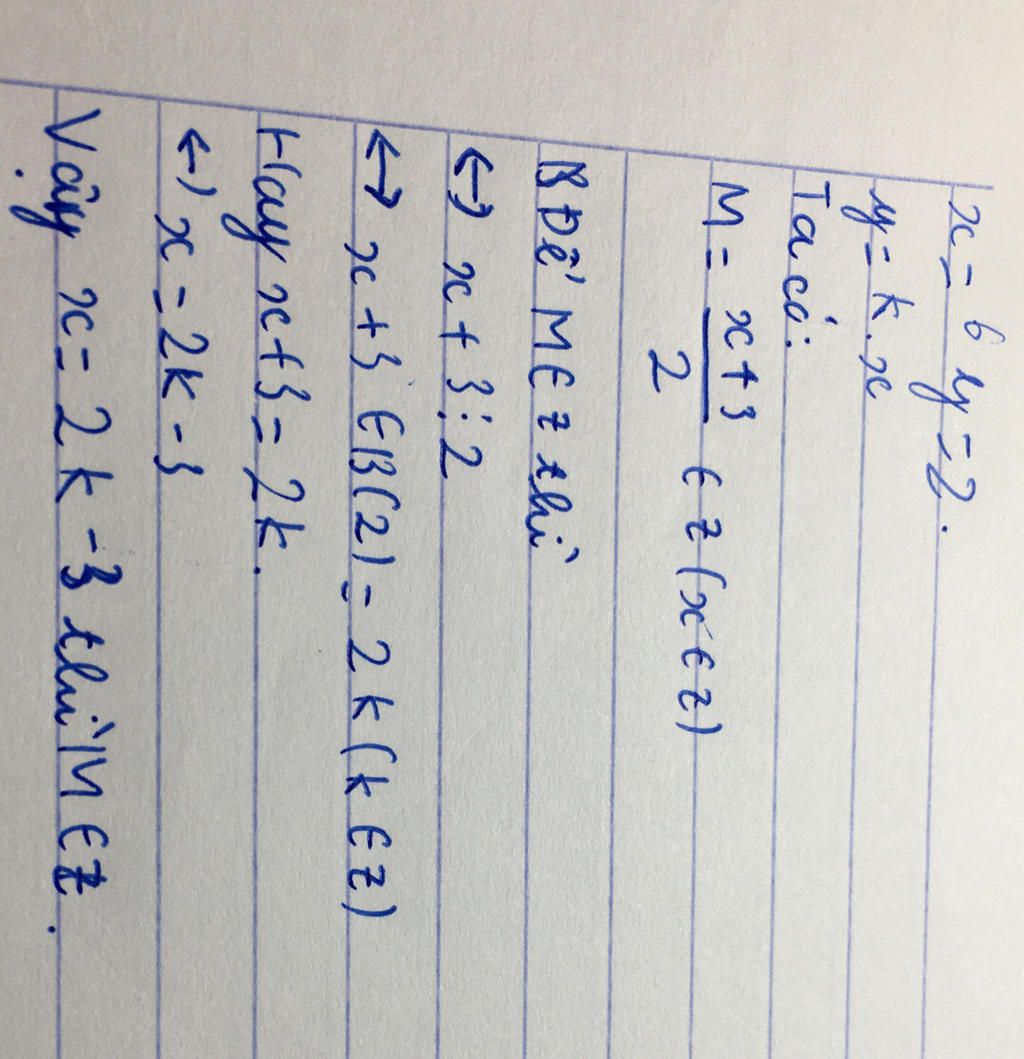 x = 6 y = 2.
y = k.x
Ta có:
M = x+3/2 ∈ Z (x ∈ Z)
Để M ∈ Z thì
↔ x + 3 ⋮ 2
↔ x + 3 ∈ B(2) = 2k (k ∈ Z)
Hay x + 3 = 2k.
↔ x = 2k - 3
Vậy x = 2k - 3 thì M ∈ Z.